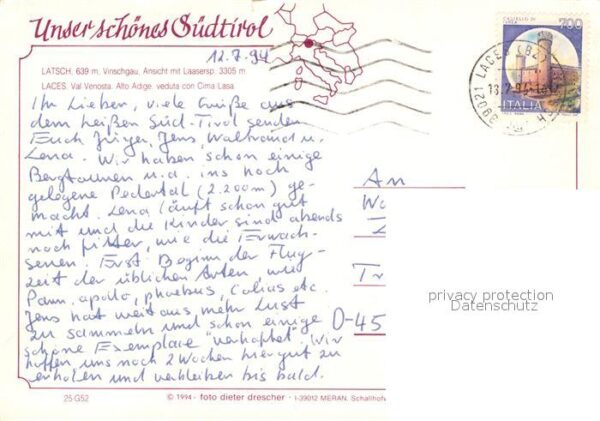 Unser schönes Südtirol
12.7.94
LATSCH, 639 m, Vinschgau, Ansicht mit Laasersp. 3305 m
LACES, Val Venosta, Alto Adige, veduta con Cima Lasa
Ihr Lieben, viele Grüße aus
dem heißen Süd-Tirol senden
Euch Jürgen, Jens, Waltraud u.
Lena. Wir haben schon einige
Bergtouren u.a. ins hoch
gelegene Pedertal (2.200m) ge-
macht. Lena läuft schon gut
mit und die Kinder sind abends
noch fitter, wie die Erwach-
senen. Erst Beginn der Flug-
zeit der üblichen Arten wie
Parn. apollo, phoebus, Colias etc.
Jens hat weitaus mehr Lust
zu sammeln und schon einige
schöne Exemplare "verhaftet". Wir
hoffen, uns noch 2 Wochen hier gut zu
erholen und verbleiben bis bald.
An
Wa
Tr
D-45
CASTELLO DI
700
ITALIA
39021 LACES (BZ)
13.7.94
privacy protection
Datenschutz
25-G52
© 1994 - foto dieter drescher - I-39012 MERAN, Schallhof